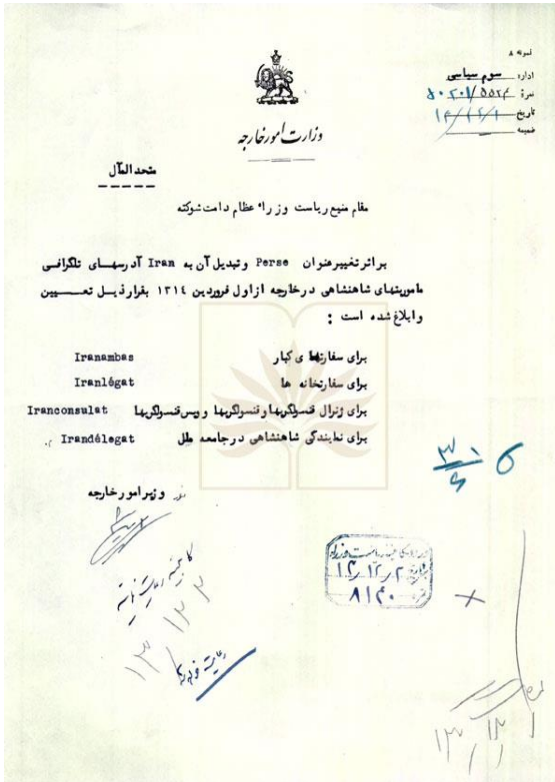 نمونه ۸
اداره سوم سیاسی
نمره ۵۰۲۰۱/۵۵۲۴
تاریخ
ضمیمه
وزارت امور خارجه
متحدالمآل
مقام منیع ریاست وزراء عظام دامت شوکته
براثر تغییر عنوان Perse وتبدیل آن به Iran آدرسهای تلگرافی
ماموریتهای شاهنشاهی درخارجه ازاول فروردین ۱۳۱۴ بقرارذیل تعیین
وابلاغ شده است :
برای سفارتهای کبار Iranambas
برای سفارتخانه ها Iranlégat
برای ژنرال قنسولگریها و قنسولگریها و ویس قنسولگریها Iranconsulat
برای نمایندگی شاهنشاهی درجامعه ملل Irandélegat
وزیر امور خارجه
۸۱۴۰